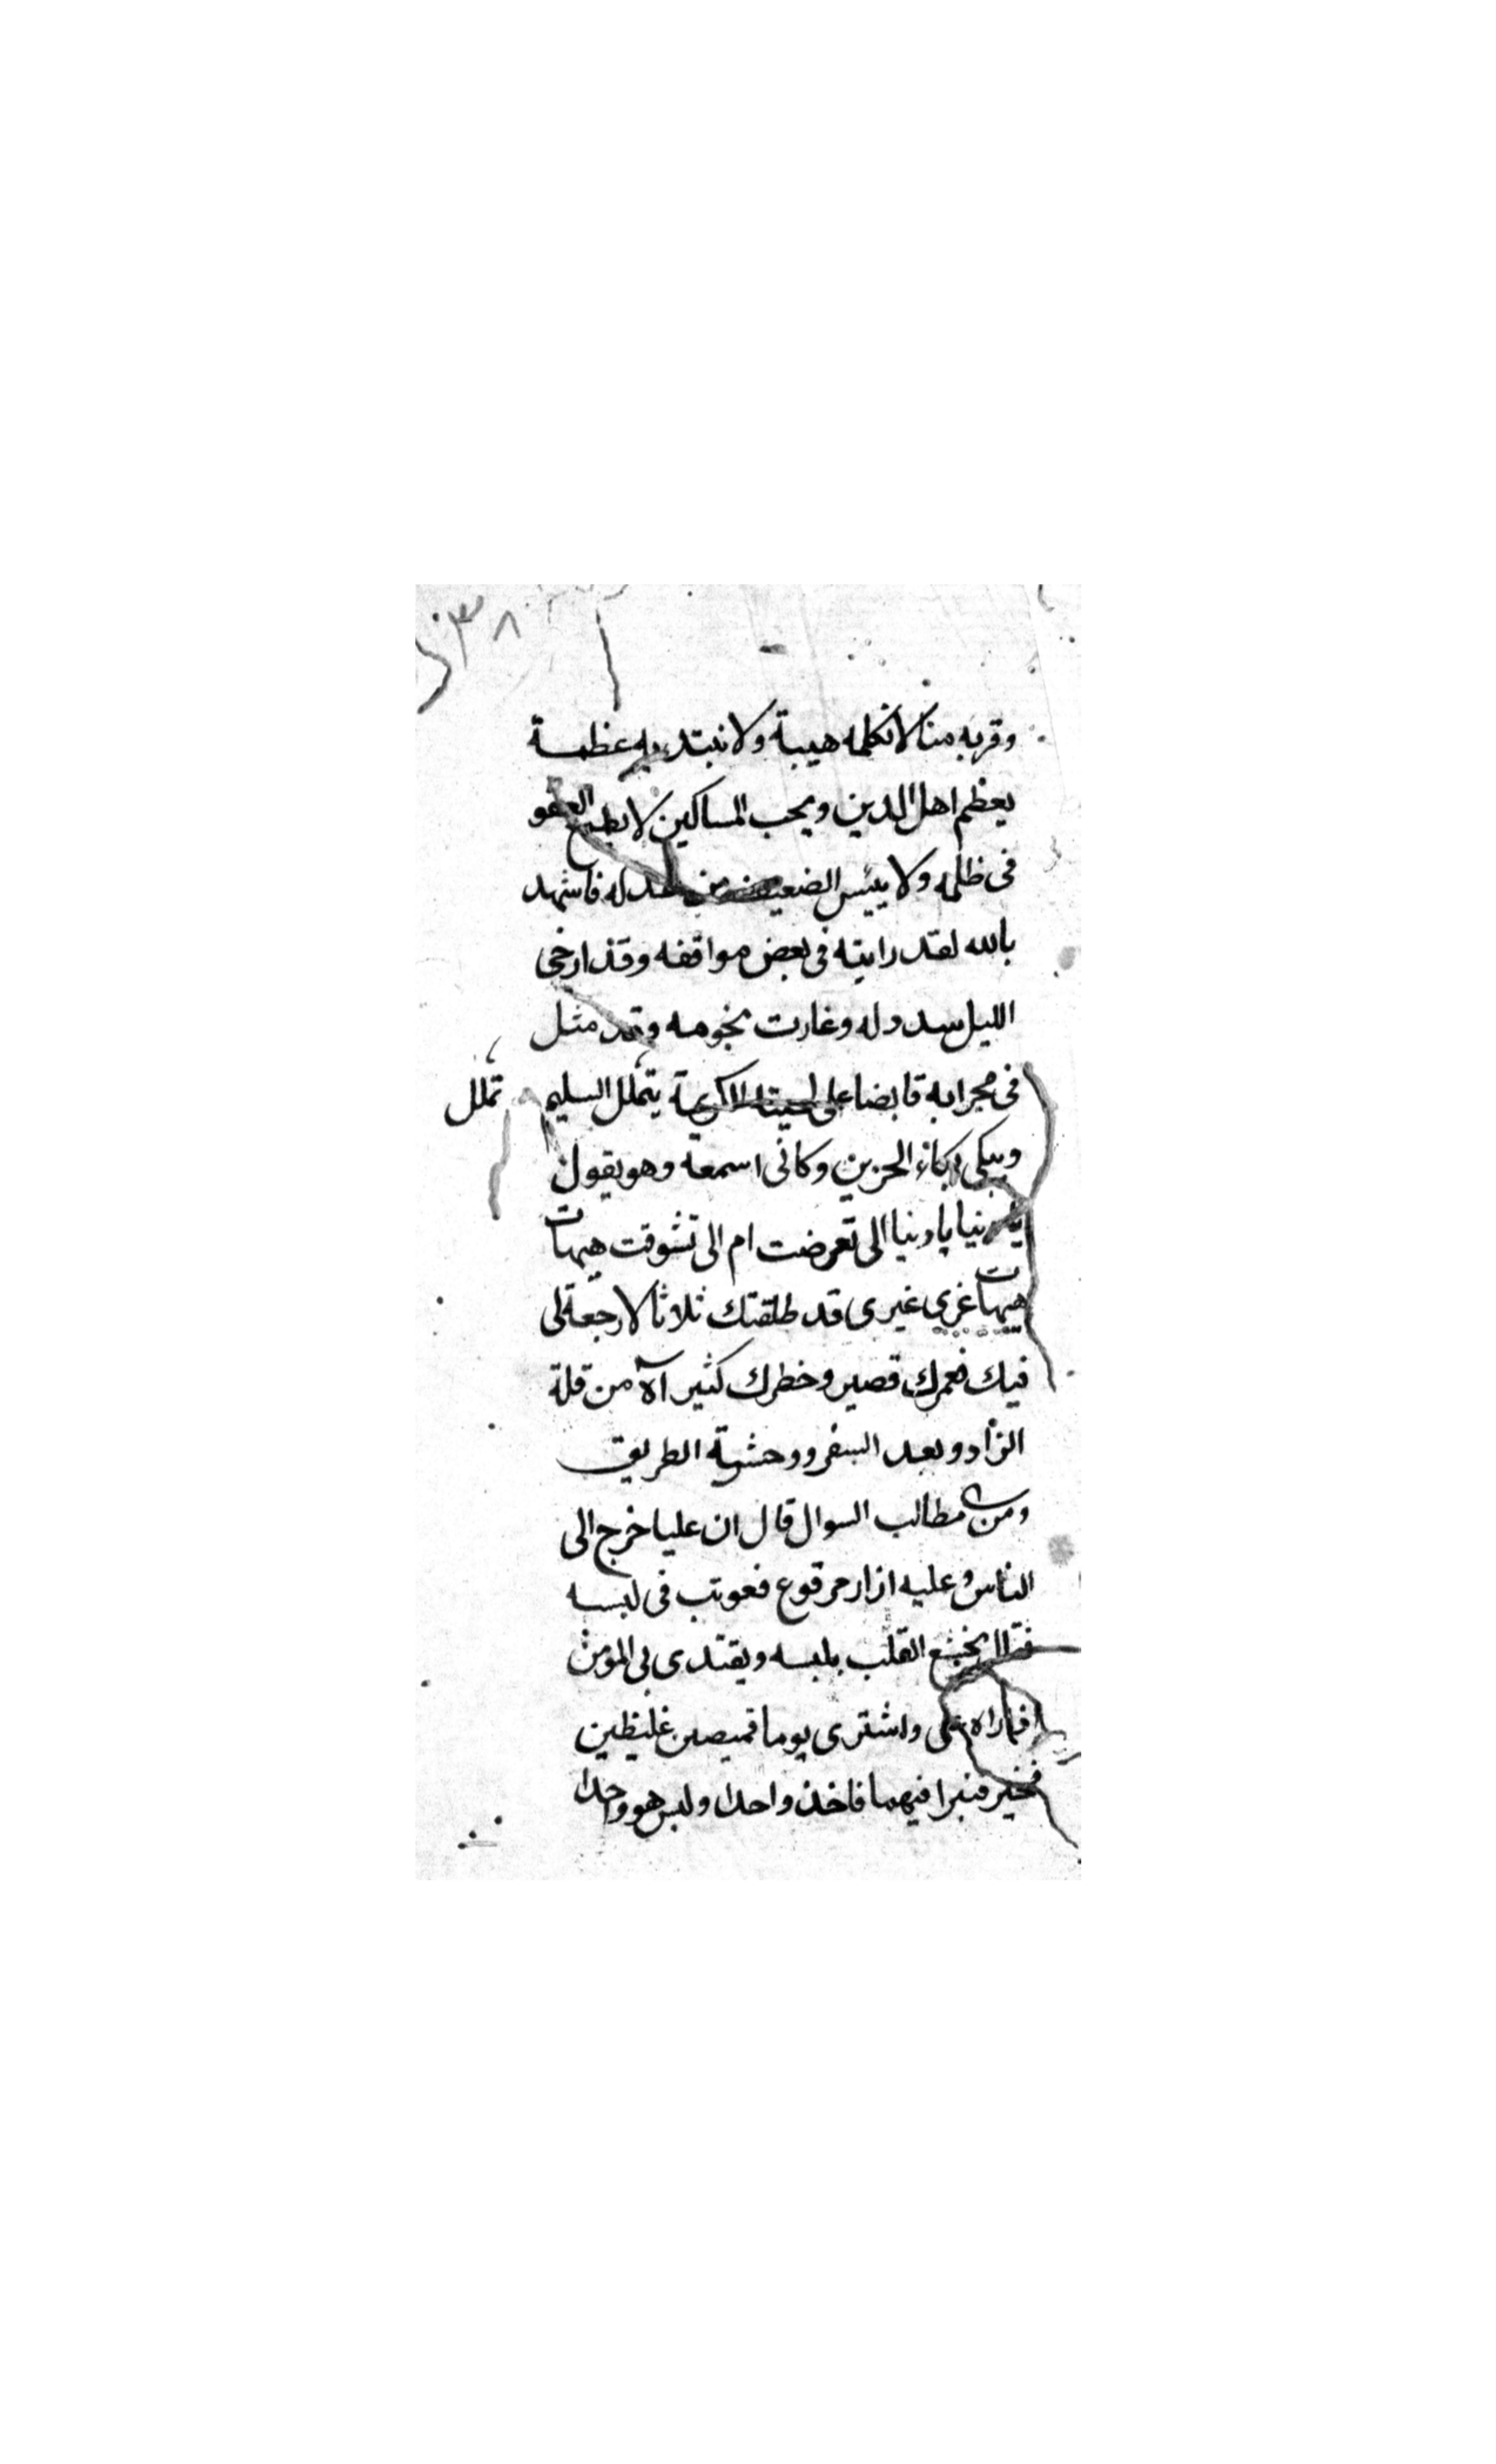 ٣٨
وقربه منا لا نكلمه هيبة ولا نبتديه عظمة
يعظم اهل الدين ويحب المساكين لا يطمع
فى ظلمه ولا ييئس الضعيف من عدله فاشهد
بالله لقد رايته فى بعض مواقفه وقد ارخى
الليل سدوله وغارت نجومه وقد مثل
فى محرابه قابضا على لحيته الكريمة يتملل السليم
تملل
ويبكى بكاء الحزين وكانى اسمعه وهو يقول
يا دنيا يا دنيا الى تعرضت ام الى تشوقت هيهات
هيهات غري غيرى قد طلقتك ثلاثا لا رجعة لى
فيك فعمرك قصير وخطرك كثير آه من قلة
الزاد وبعد السفر ووحشة الطريق
ومن مطالب السوال قال ان عليا خرج الى
الناس وعليه ازار مرقوع فعوتب فى لبسه
فقال يخشع القلب بلبسه ويقتدى بى المومن
اذا راه على واشترى يوما قميصين غليظين
فخير قنبرا فيهما فاخذ واحدا ولبس هو واحدا